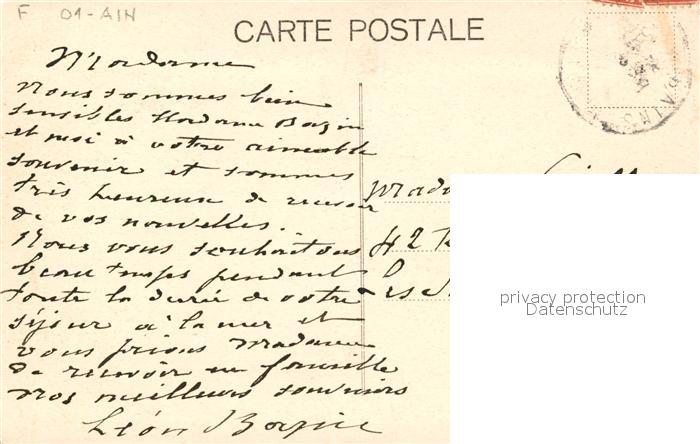 F 01-AIN
CARTE POSTALE
Madame
Nous sommes bien
sensibles Madame Bazin
et moi à votre aimable
souvenir et sommes
très heureux de recevoir
de vos nouvelles.
Nous vous souhaitons
beau temps pendant
toute la durée de votre
séjour à la mer et
vous prions Madame
de recevoir en famille
nos meilleurs souvenirs
Léon Bazin
Mada
42
privacy protection
Datenschutz
BAINS